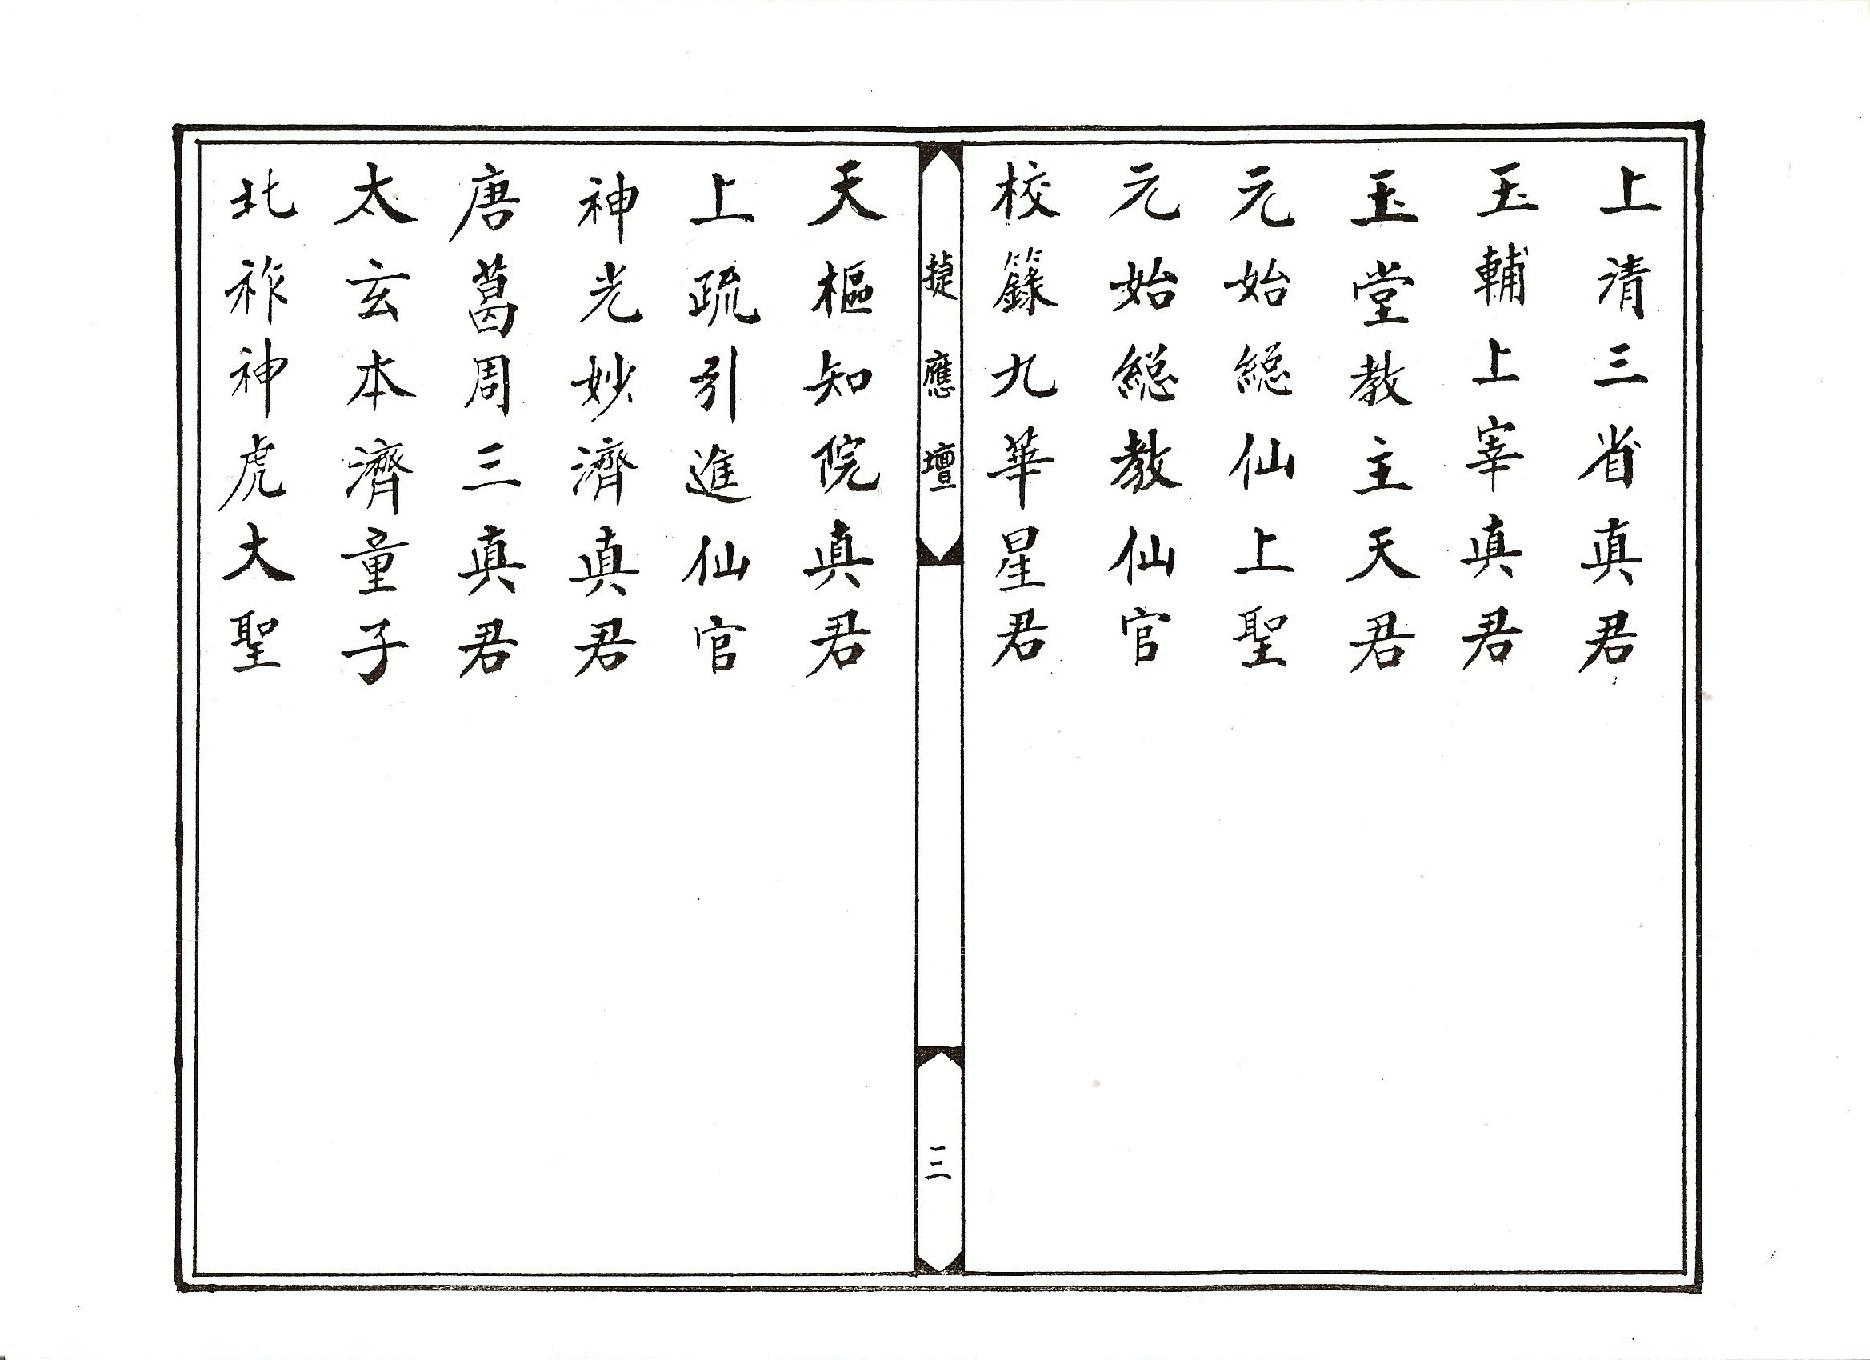 上清三省真君
玉輔上宰真君
玉堂教主天君
元始総仙上聖
元始総教仙官
校籙九華星君
捷應壇
三
天樞知院真君
上疏引進仙官
神光妙濟真君
唐葛周三真君
太玄本濟童子
北祚神虎大聖